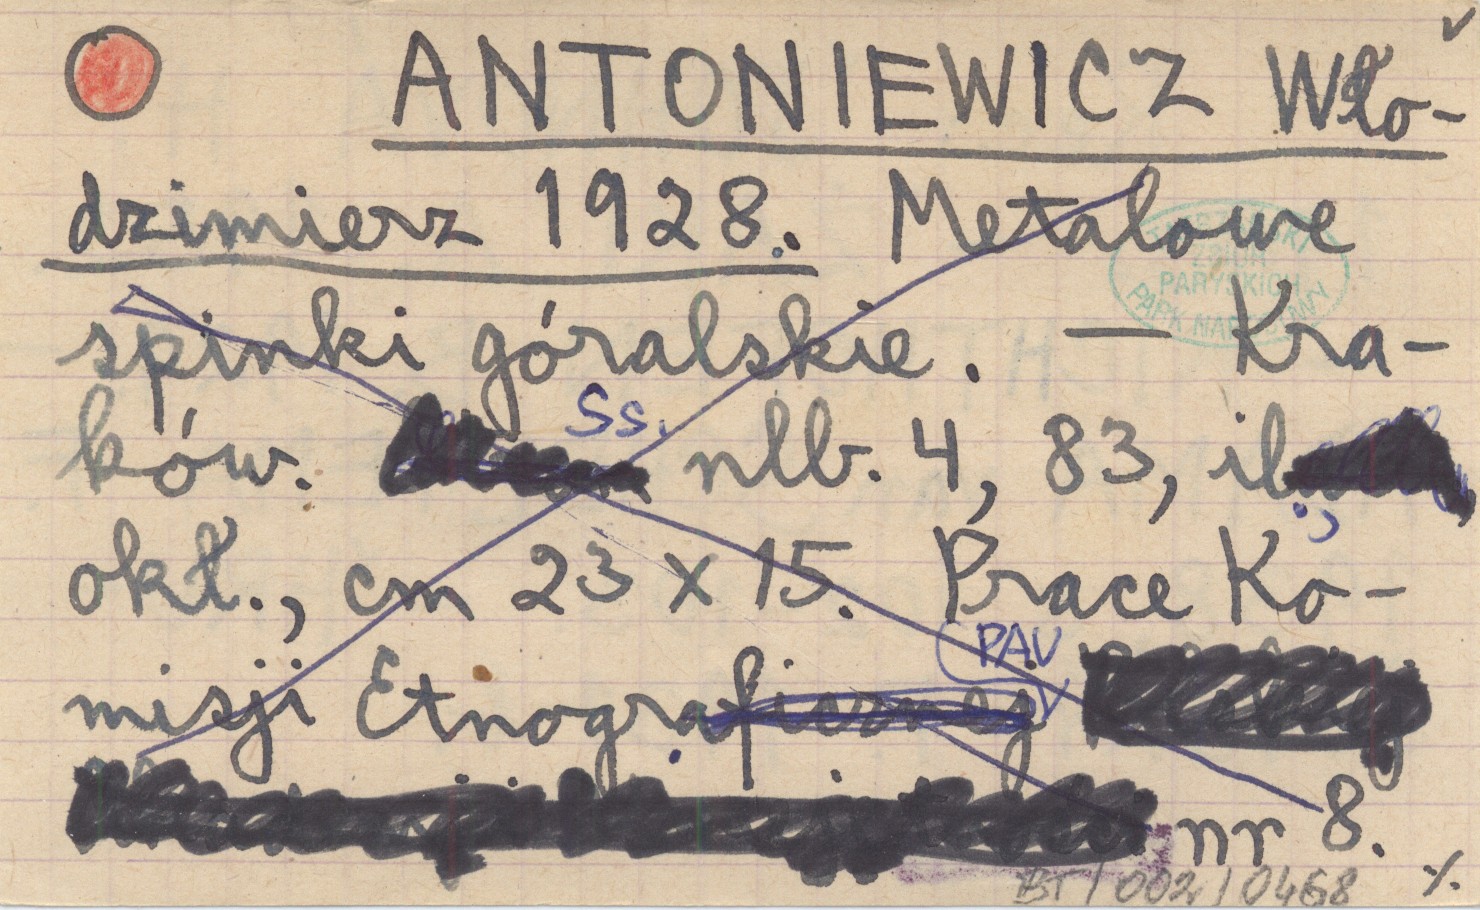 ANTONIEWICZ Wło-
dzimierz 1928. Metalowe
spinki góralskie. — Kra-
ków. Ss. nlb. 4, 83, il.,
okł., cm 23 x 15. Prace Ko-
misji Etnograficznej PAU
nr 8.
TATRZAŃSKI
PARYSKICH
PARK NARODOWY
BT/002/0468
%